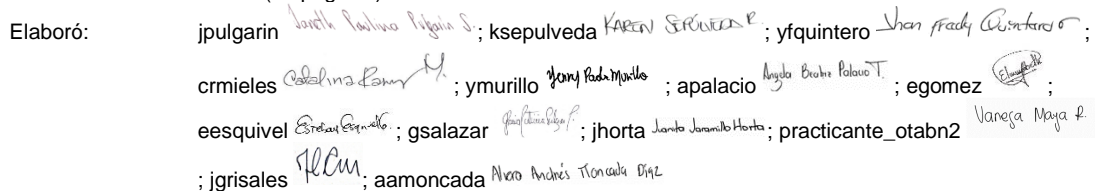 Elaboró: jpulgarin Janeth Paulina Pulgarin S. ; ksepulveda KAREN SEPÚLVEDA R. ; yfquintero Jhan Fredy Quintero ;
crmieles Catalina M. ; ymurillo Yenny Paola Murillo ; apalacio Angela Beatriz Palacio T. ; egomez ;
eesquivel Esteban Esquivel ; gsalazar ; jhorta Juanita Jaramillo Horta ; practicante_otabn2 Vanesa Maya R.
; jgrisales ; aamoncada Alvaro Andrés Moncada Díaz